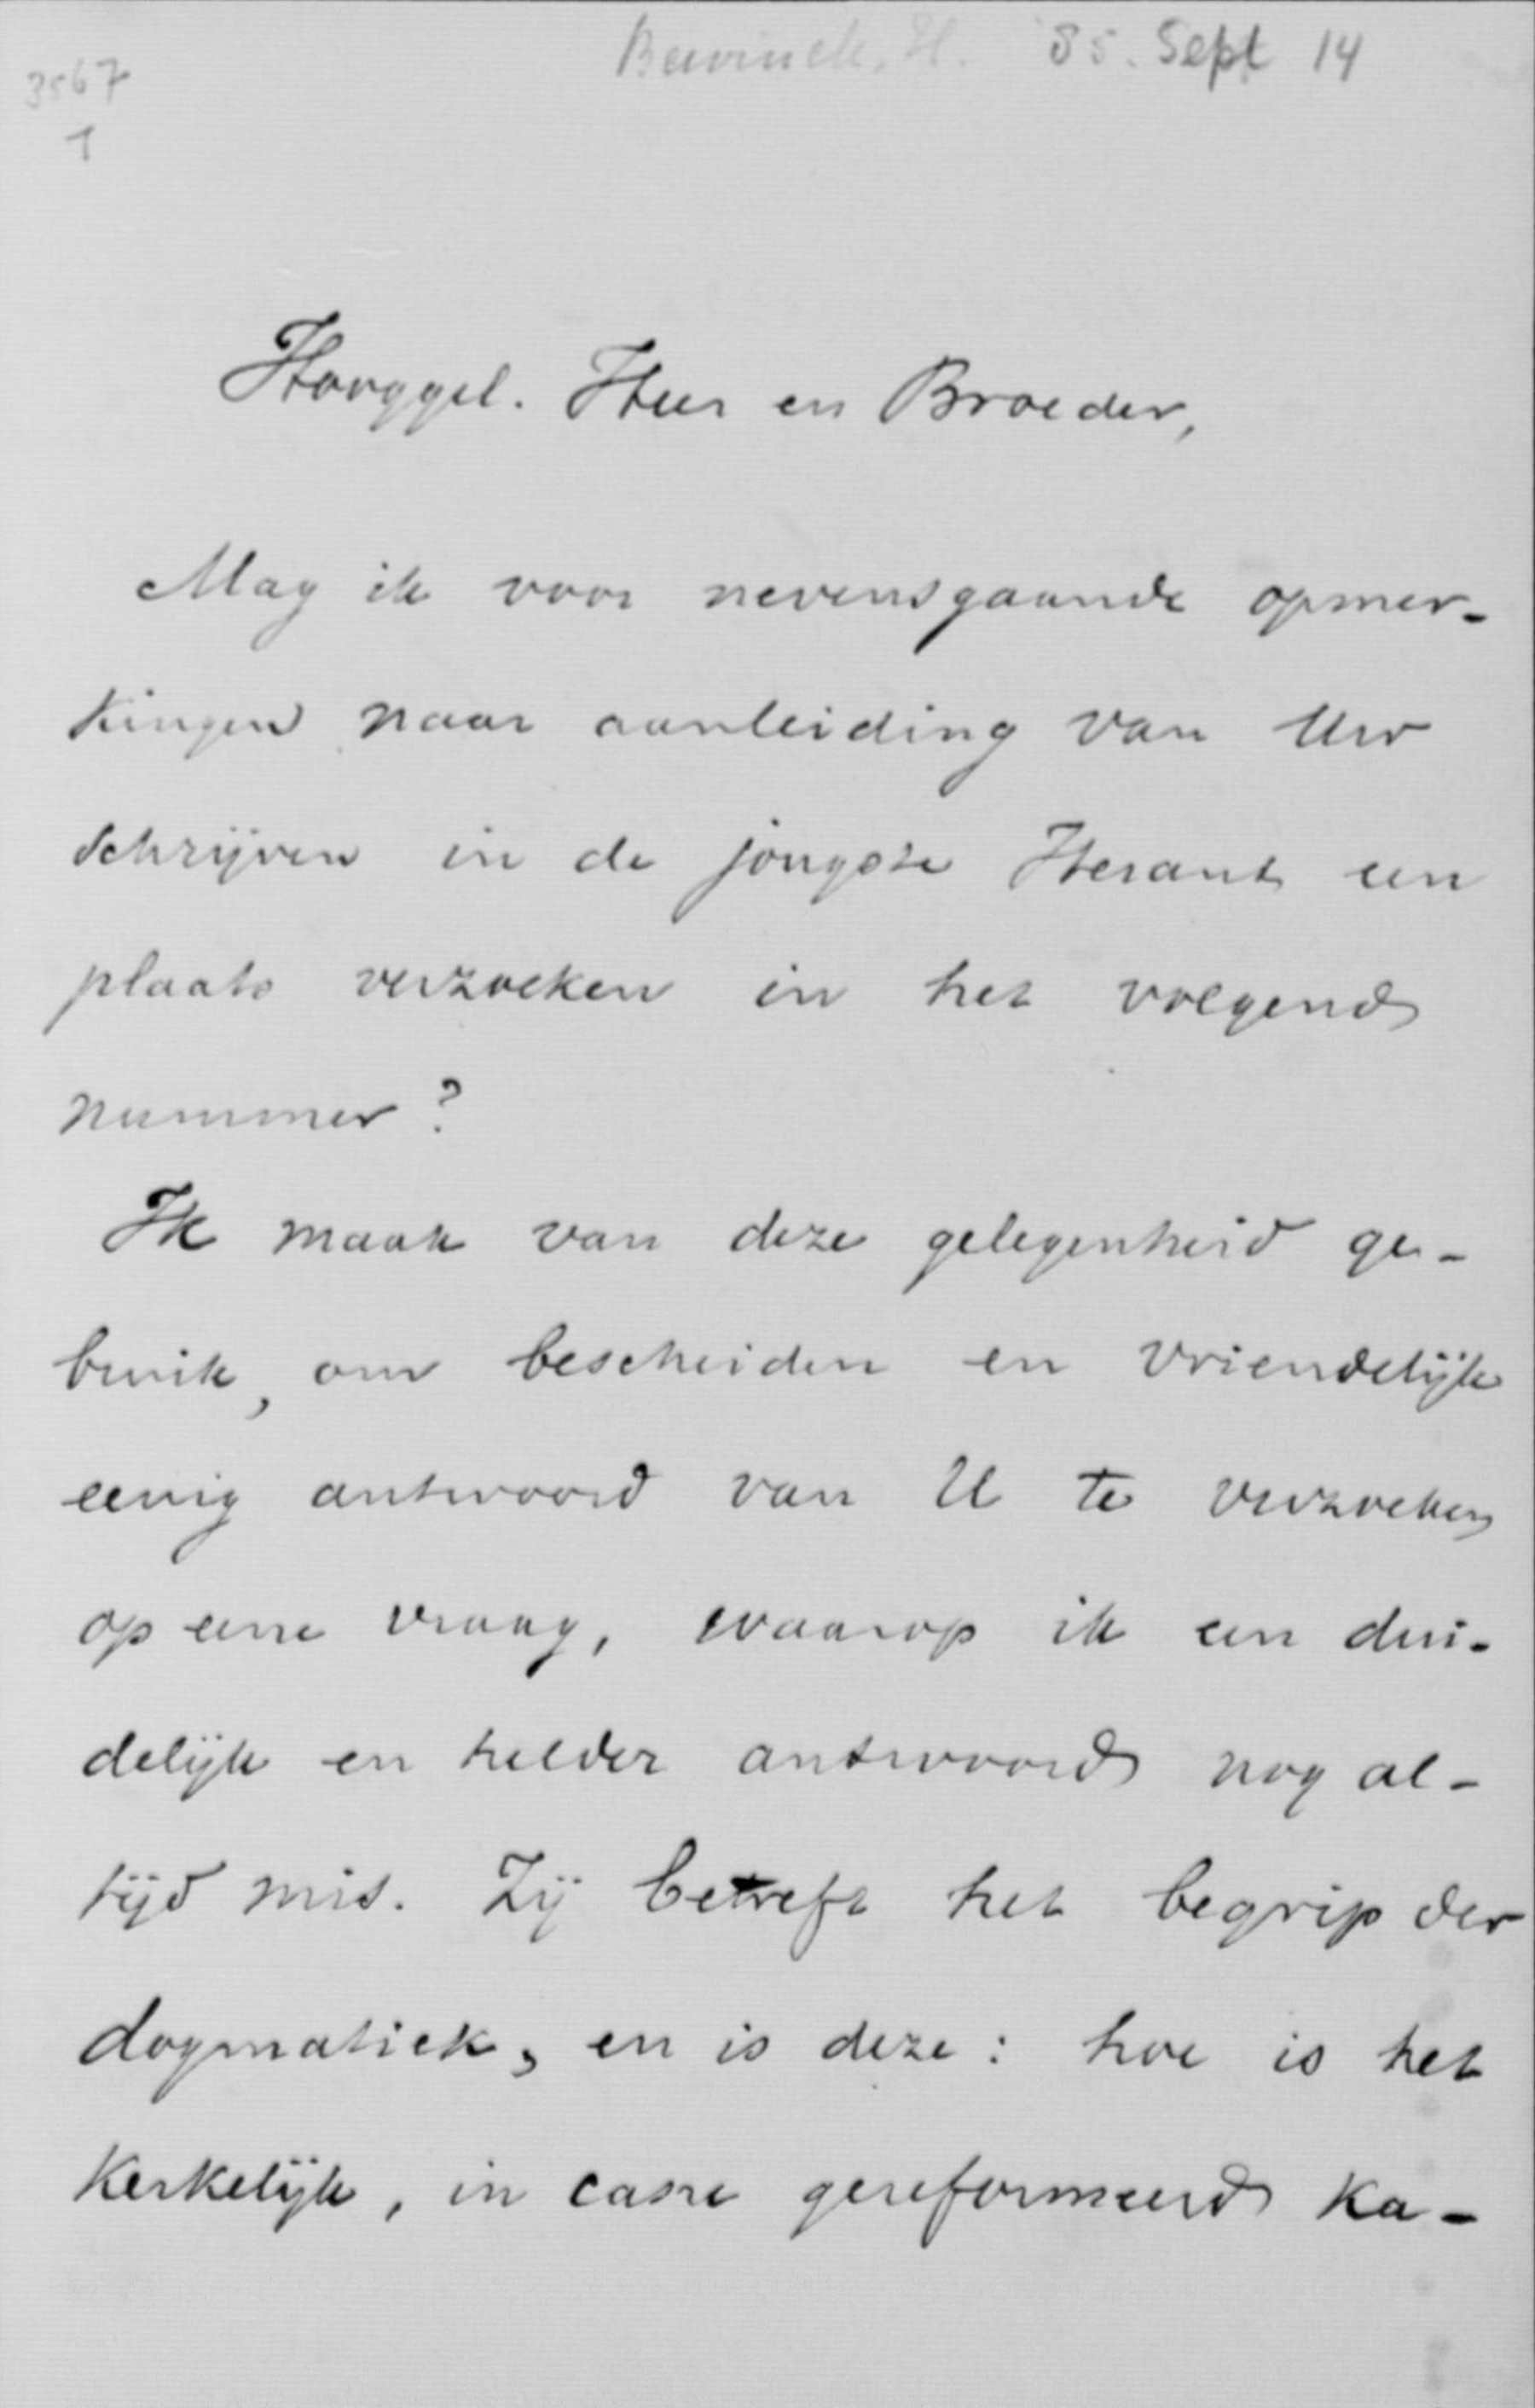 Bavinck. H. 85. Sept 14
3567
1
Hooggel. Heer en Broeder,
Mag ik voor nevensgaande opmer-
kingen naar aanleiding van Uw
schrijven in de jongste Heraut een
plaats verzoeken in het volgend
nummer?
Ik maak van deze gelegenheid ge-
bruik, om bescheiden en vriendelijk
eenig antwoord van U te verzoeken
op eene vraag, waarop ik een dui-
delijk en helder antwoord nog al-
tijd mis. Zij betreft het begrip der
dogmatiek, en is deze: hoe is het
kerkelijk, in casu gereformeerd ka-